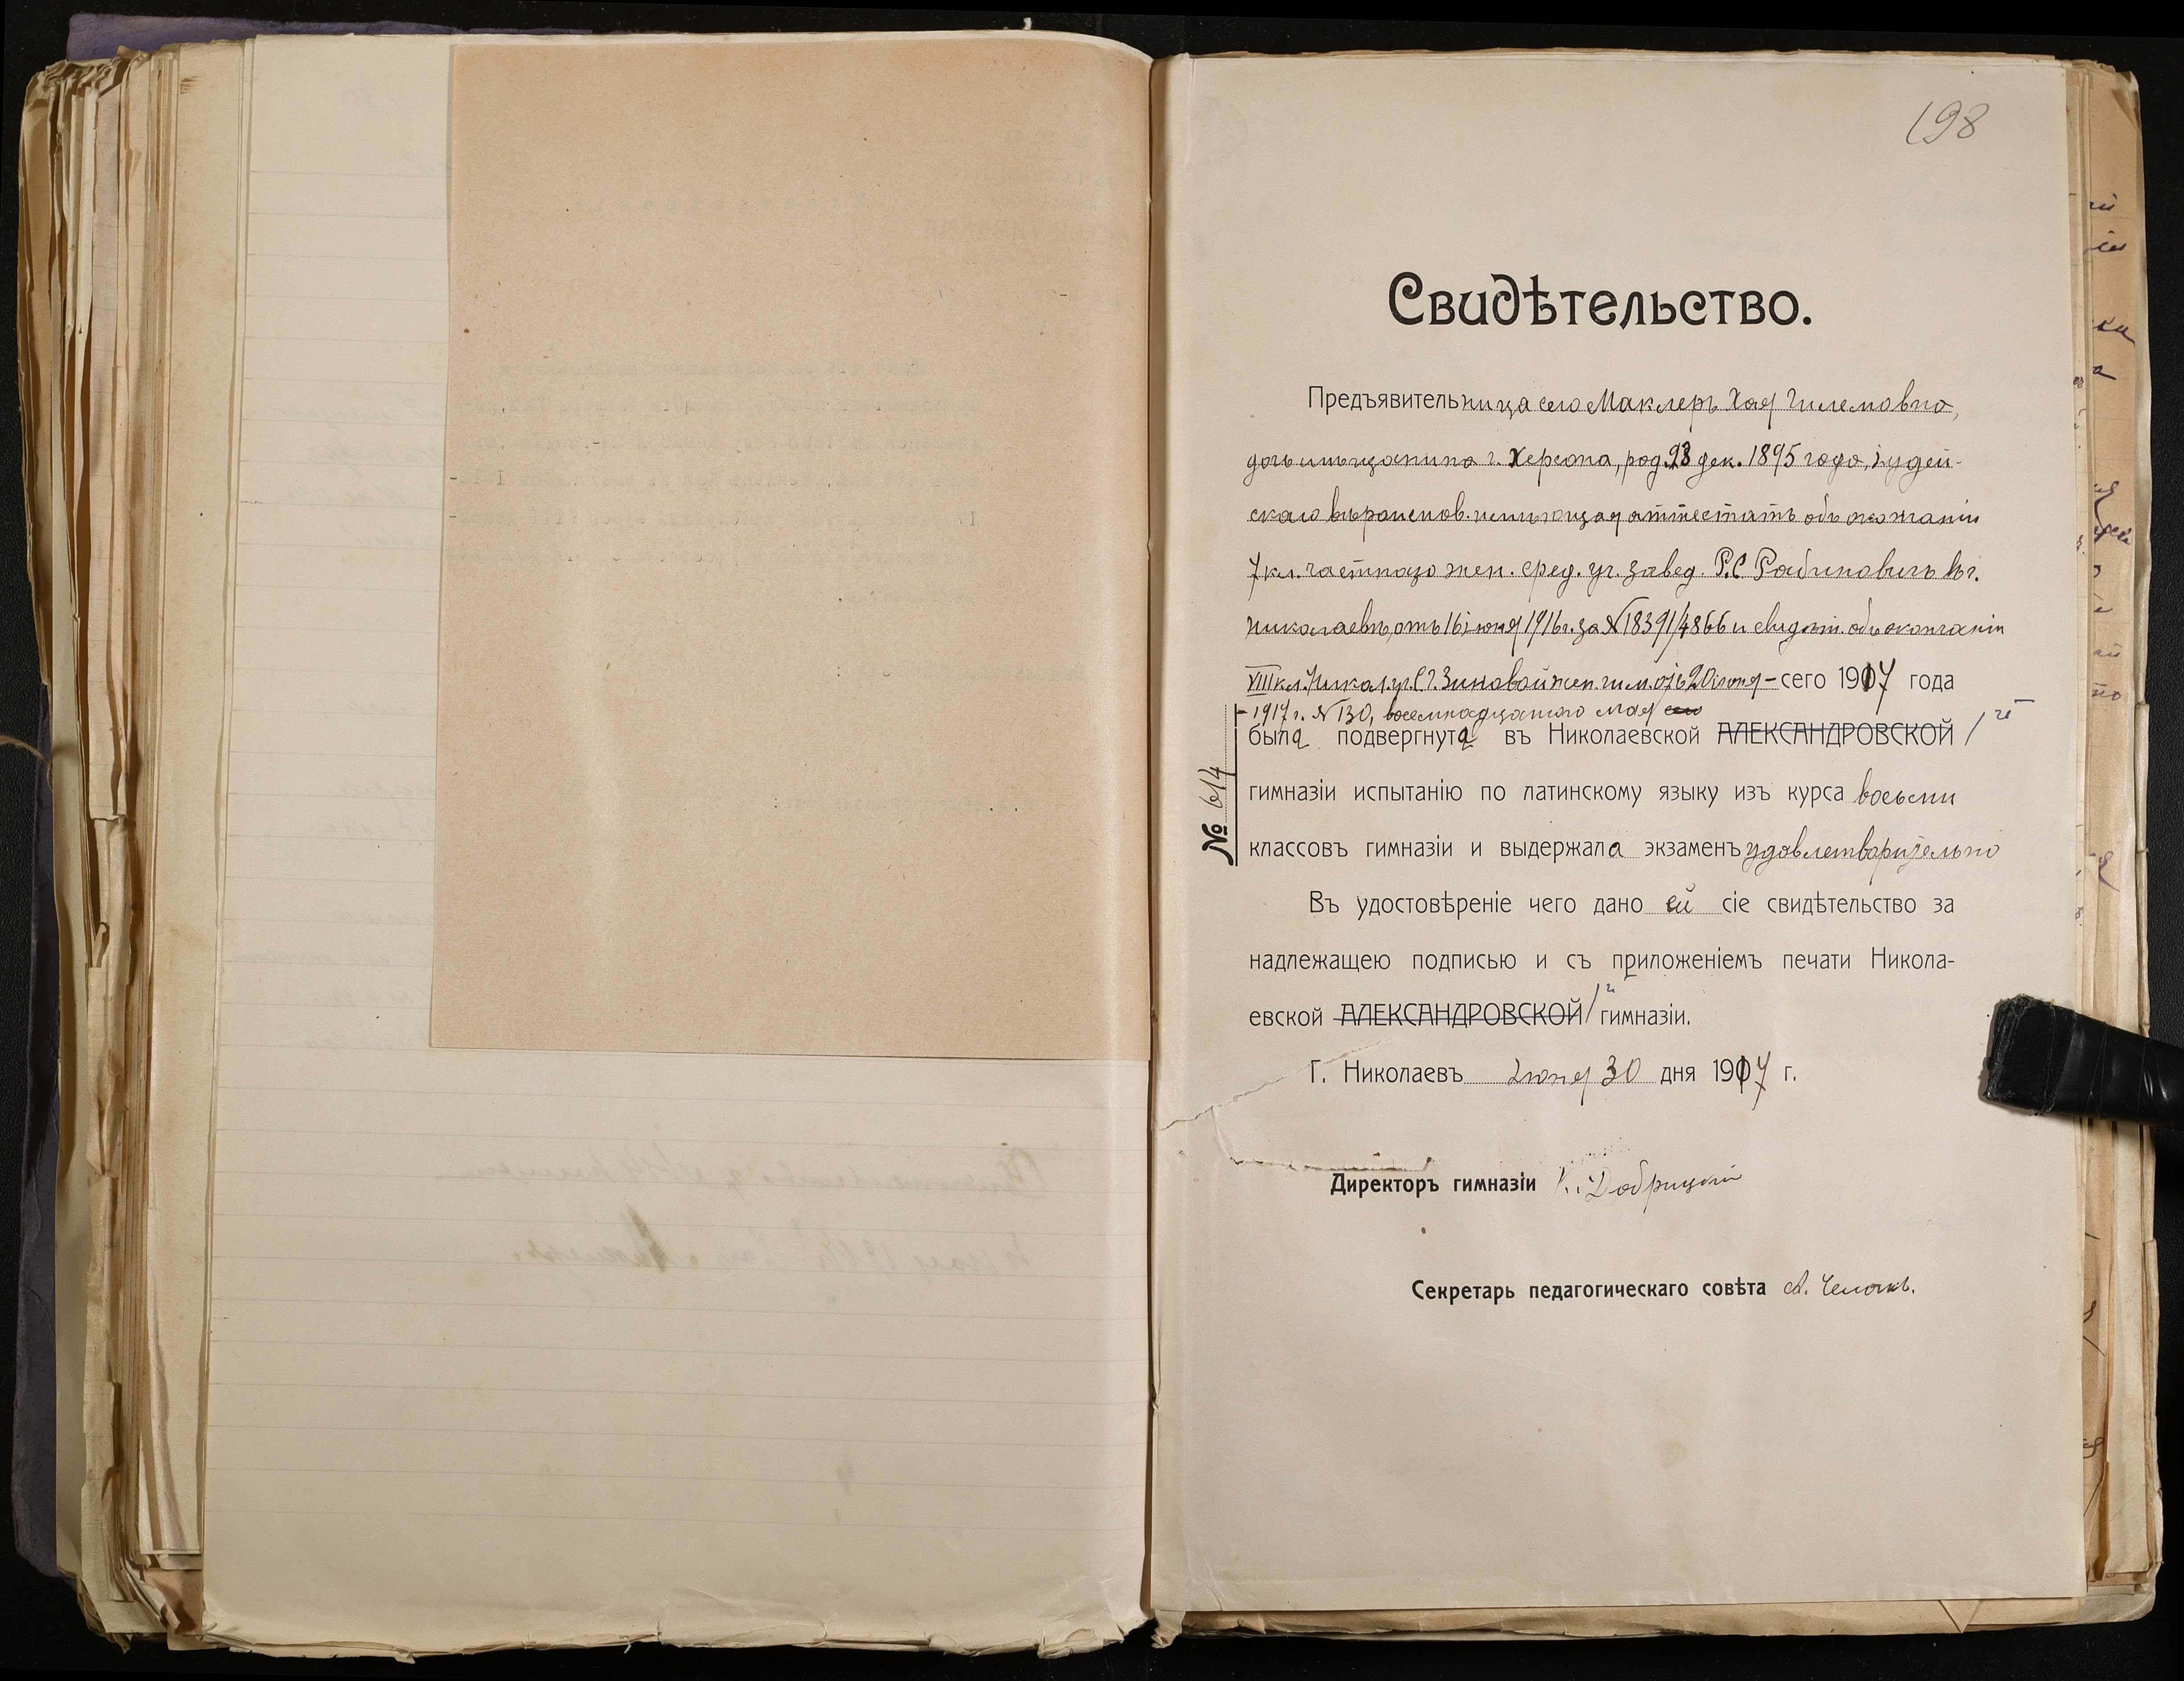 198
Свидѣтельство.
Предъявительница сего Маклеръ Хая Гилемовна,
дочь мѣщанина г. Херсона, род. 23 дек. 1895 года, іудей-
скаго вѣроисповѣд. имѣющая аттестатъ объ окончаніи
7 кл. частнаго жен. сред. уч. завед. Р.С. Рабиновичъ въ г.
Николаевѣ, отъ 16 іюня 1916 г. за № 18391/4866 и свидѣт. объ окончаніи
VIII кл. Никол. уч. С.Г. Зиновой жен. гим. отъ 20 іюня - сего 1917 года
- 1917 г. № 130, восемнадцатаго мая
была подвергнута въ Николаевской АЛЕКСАНДРОВСКОЙ 1й
гимназіи испытанію по латинскому языку изъ курса восьми
классовъ гимназіи и выдержала экзаменъ удовлетворительно
№ 614
Въ удостовѣреніе чего дано ей сіе свидѣтельство за
надлежащею подписью и съ приложеніемъ печати Никола-
евской АЛЕКСАНДРОВСКОЙ 1й гимназіи.
Г. Николаевъ Іюня 30 дня 1917 г.
Директоръ гимназіи К. Добрицкій
Секретарь педагогическаго совѣта А.